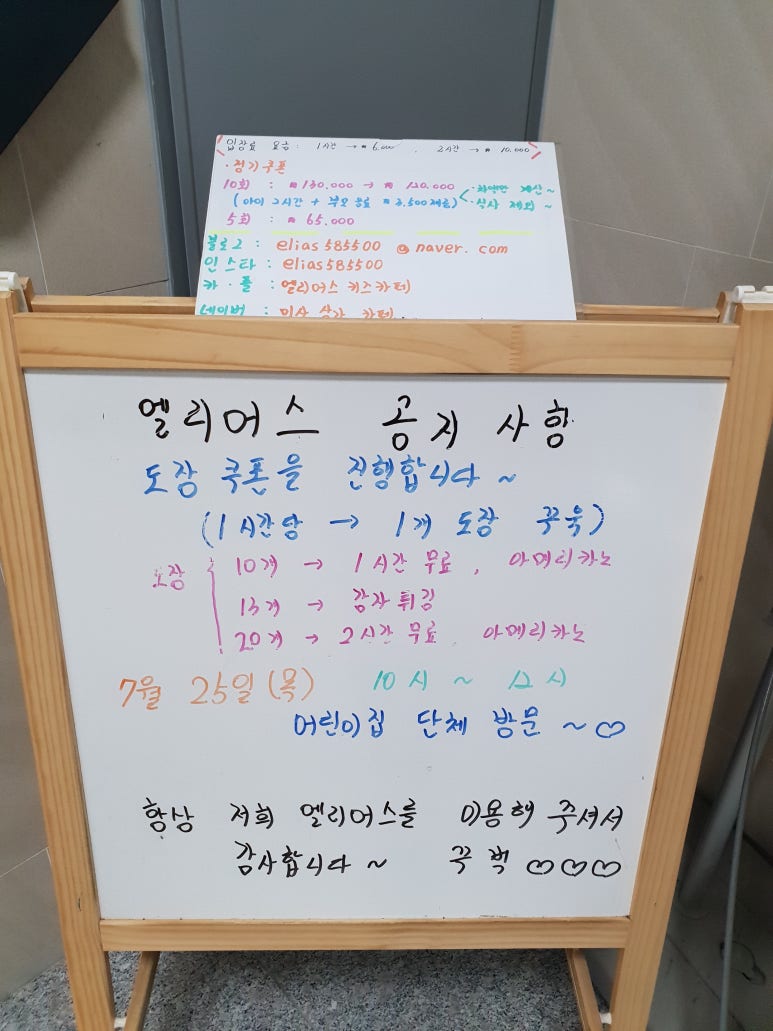 입장료 요금 : 1시간 → ₩ 6.000 , 2시간 → ₩ 10.000
· 정기쿠폰
10회 : ₩ 130.000 → ₩ 120.000 < · 차액만 계산 ~
(아이 2시간 + 부모 음료 ₩ 3.500제공) · 식사 제외 ~
5회 : ₩ 65.000
블로그 : elias585500 @ naver. com
인스타 : elias585500
카 · 톡 : 엘리어스 키즈카페
네이버 : 미사 카페
엘리어스 공지 사항
도장 쿠폰을 진행합니다 ~
(1시간당 → 1개 도장 꾸욱)
도장 { 10개 → 1시간 무료 , 아메리카노
13개 → 감자튀김
20개 → 2시간 무료 . 아메리카노
7월 25일 (목) 10시 ~ 12시
어린이집 단체 방문 ~ ♡
항상 저희 엘리어스를 이용해 주셔서
감사합니다 ~ 꾸벅 ♡♡♡